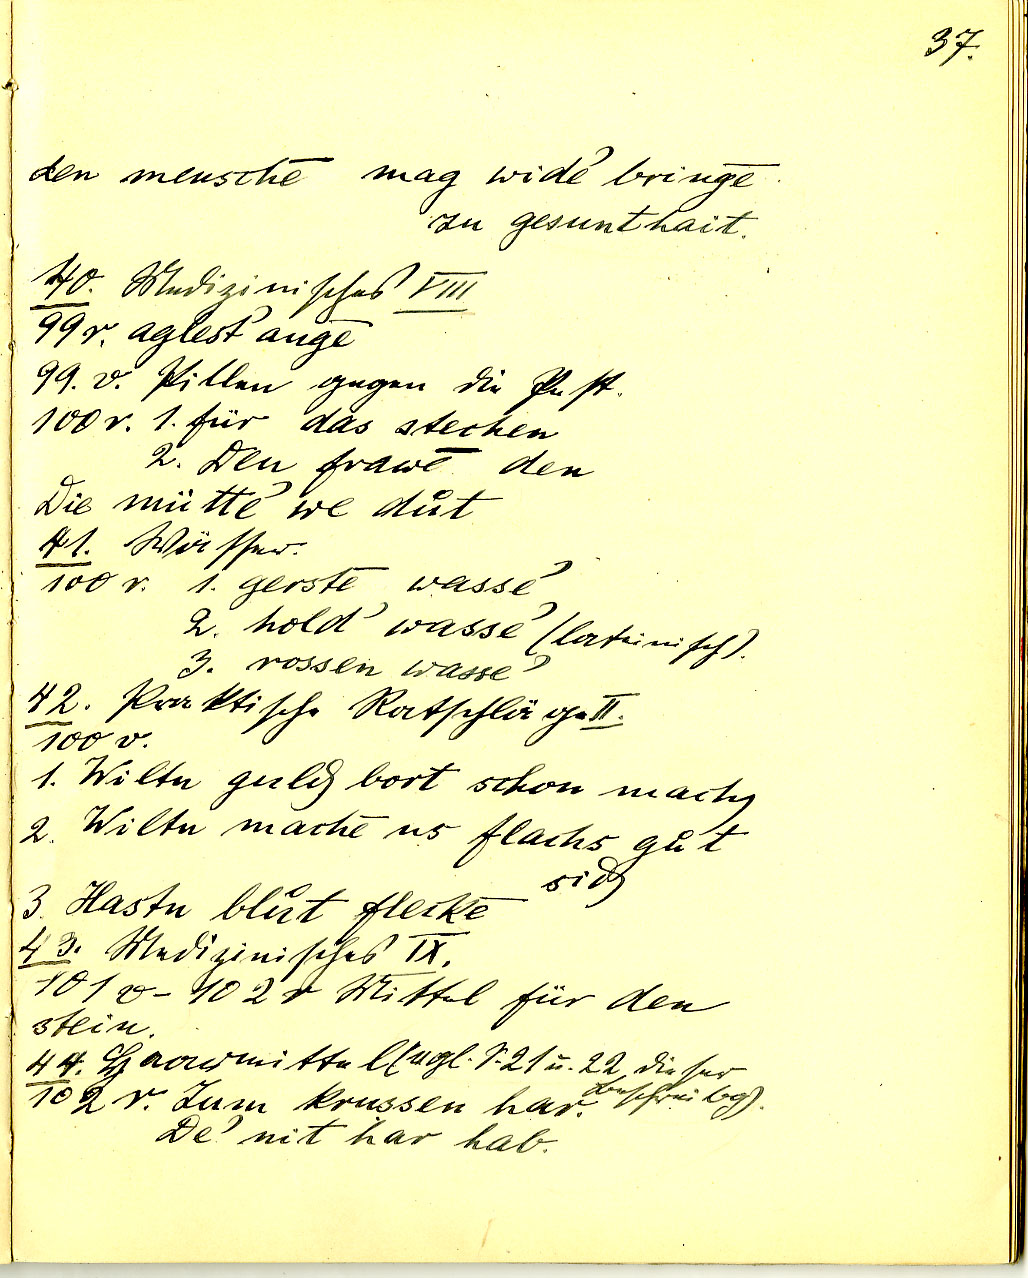 37.
den menschē mag wide' bringē
zu gesunthait.
40. Medizinisches VIII
99r. aglest' augē
99. v. Pillen gegen die Pest.
100r. 1. für das stechen
2. Den frawē den
Die mütte' we důt
41. Wässer.
100 r. 1. gerstē wasse'
2. hold' wasse' (lateinisch).
3. rossen wasse'
42. Praktische Ratschläge II.
100 v.
1. Wiltu bort schon
2. Wiltu machē us flachs gůt
3. Hastu blůt fleckē
43. Medizinisches IX.
101 v - 102 r Mittel für den
stein.
44. Haarmittel (vgl. S. 21 u. 22 dieser
102 r. Zum krussen har. Beschreibg).
De' nit har hab.